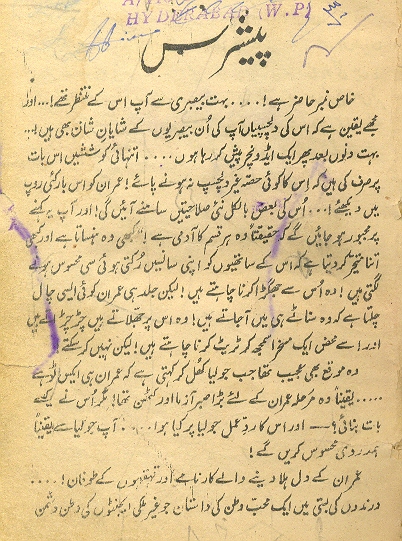 HYDERABAD (W.P)
پیشرس
خاص نمبر حاضر ہے! .... بہت بے صبری سے آپ اس کے منتظر تھے! ... اور
مجھے یقین ہے کہ اس کی دلچسپیاں آپ کی اُن بے صبریوں کے شایانِ شان بھی ہیں! ...
بہت دنوں بعد پھر ایک ایڈونچر پیش کر رہا ہوں .... انتہائی کوششیں اس بات
پر صرف کی ہیں کہ اس کا کوئی حصہ غیر دلچسپ نہ ہونے پائے! عمران کو اس بار کئی روپ
میں دیکھئے! ... اُس کی بعض بالکل نئی صلاحیتیں سامنے آئیں گی! اور آپ یہ کہنے
پر مجبور ہو جائیں گے کہ حقیقتاً وہ ہر قسم کا آدمی ہے! کبھی وہ ہنساتا ہے اور کبھی
اتنا متحیر کر دیتا ہے کہ اس کے ساتھیوں کو اپنی سانسیں رُکتی ہوئی سی محسوس ہونے
لگتی ہیں! وہ اُس سے جھگڑا کرنا چاہتے ہیں! لیکن جلد ہی عمران کوئی ایسی چال
چلتا ہے کہ وہ سناٹے ہی میں آ جاتے ہیں! وہ اس پر جھلاتے ہیں چڑچڑاتے ہیں
اور اسے محض ایک مسخرا سمجھ کر ٹریٹ کرنا چاہتے ہیں! لیکن نہیں کر سکتے
وہ موقع بھی عجیب تھا جب جولیا کھُل کر کہتی ہے کہ عمران ہی ایکس ٹو ہے
..... یقیناً وہ مرحلہ عمران کے لئے بڑا صبر آزما اور کٹھن تھا! مگر اُس نے کیسے
بات بنائی؟ — اور اس کا ردِ عمل جولیا پر کیا ہوا .... آپ جولیا سے یقیناً
ہمدردی محسوس کریں گے!
عمران کے دل ہلا دینے والے کارنامے اور قہقہوں کے طوفان! ....
درندوں کی بستی میں ایک محب وطن کی داستان جو غیر ملکی ایجنٹوں کی وطن دشمن